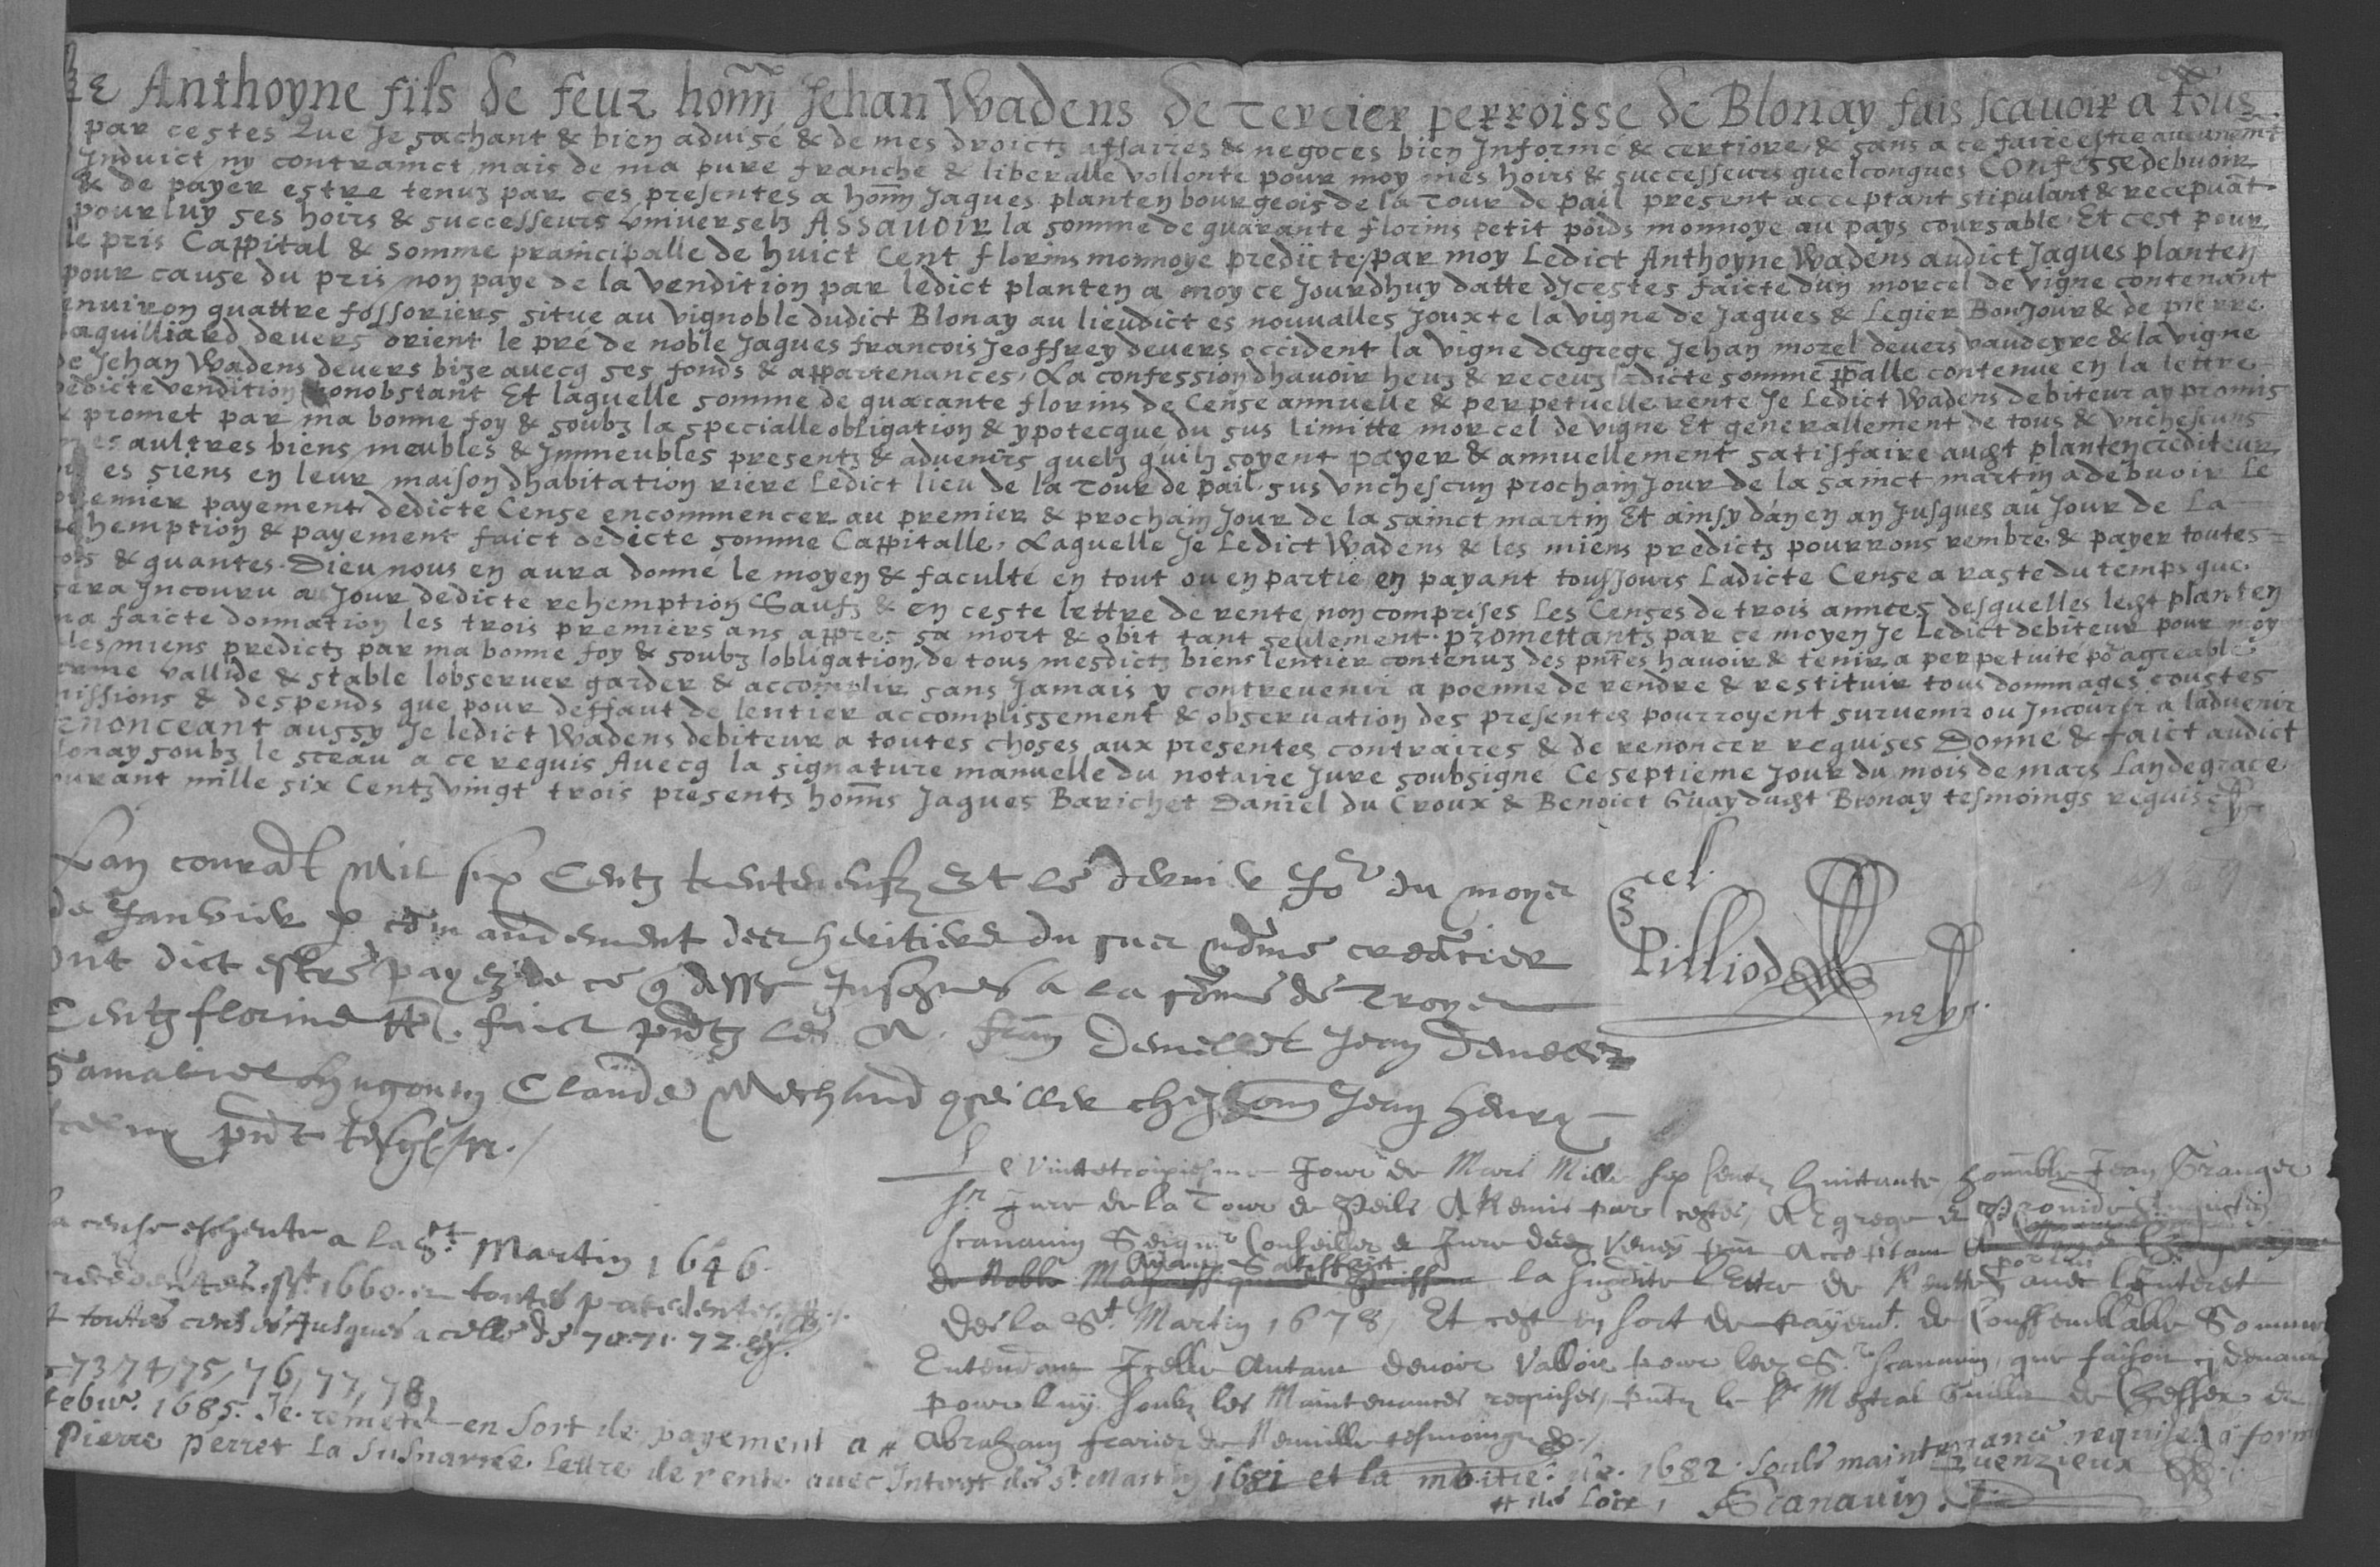 Je Anthoyne fils de feuz hon̄n Jehan Wadens de Tercier perroisse de Blonay fais scavoir a tous
par cestes Que Je sachant & bien advise & de mes droictz affaires & negoces bien Informé & certioré & sans a ce faire estre aucunemt
Induict ny contrainct mais de ma pure franche & liberalle vollonte pour moy mes hoirs & successeurs quelconques Confesse debuoir
& de payer estre tenuz par ces presentes a hon̄n Jaques planten bourgeois de la Tour de pail present acceptant stipulant & recepuāt
pour luy ses hoirs & successeurs vniverselz Assauoir la somme de quarante florins petit poids monnoye au pays coursable. Et cest pour
le pris Cappital & somme prainci­palle de huict Cent florins monnoye predicte par moy Ledict Anthoyne Wadens audict Jaques planten
pour cause du pris non paye de la vendition par ledict planten a moy ce Jourdhuy datte dycestes faicte dun morcel de vigne contenant
enuiron quattre fossoriers situe au vignoble dudict Blonay au lieudict es nouualles Jouxte la vigne de Jaques & Legier BonJour & de pierre
aquilliard devers orient le pré de noble Jaques francois Jeoffrey devers occident la vigne degrege Jehan morel devers vaudeyre & la vigne
de Jehan Wadens devers bize avecq ses fonds & appartenances, La confession dhavoir heuz & receuz ladicte somme p̄palle contenue en la lettre
dedicte vendition nonobstant Et laquelle somme de quarante florins de Cense annuelle & perpetuelle rente Je Ledict Wadens debiteur ay promis
& promet par ma bonne foy & soubz la specialle obligation & ypotecque du sus limitte morcel de vigne Et generallement de tous & vnchescuns
mes aultres biens meubles & Jmmeubles presentz & advenirs quelz quilz soyent payer & annuellement satisfaire audt planten crediteur
es siens en leur maison dhabitation riere Ledict lieu de la Tour de pail sus vnchescun prochain Jour de la sainct martin a debuoir Le
premier payement dedicte Cense encommencer au premier & prochain Jour de la sainct martin Et ainsy dan en an Jusques au Jour de La
rehemption & payement faict dedicte somme Cappitalle, Laquelle Je Ledict Wadens & les miens predictz pourrons rembre & payer toutes
fois & quantes Dieu nous en aura donné le moyen & faculté en tout ou en partie en payant tousJours Ladicte Cense a raste du temps que
sera Incouru au Jour dedicte rehemption Saufz & en ceste lettre de rente non comprises Les Censes de trois annees desquelles ledt planten
ma faicte donnation les trois premiers ans appres sa mort & obit tant seulement. promettants par ce moyen Je Ledict debiteur pour moy
& les miens predictz par ma bonne foy & soubz lobligation de tous mesdictz biens lentier contenuz des pn̄tes havoir & tenir a perpetuite po agreable
ferme vallide & stable lobserver garder & accomplir sans Jamais y contrevenir a poenne de rendre & restituir tous dommages coustes
missions & despends que pour deffaut de lentier accomplissement & observation des presentes pourroyent survenir ou Jncourir a ladvenir
Renonceant aussy Je ledict Wadens debiteur a toutes choses aux presentes contraires & de renoncer requises Donne & faict audict
Blonay soubz le sceau a ce requis Avecq la signature manuelle du notaire Jure soubsigne Ce septieme Jour du mois de mars Lan de grace
courant mille six Centz vingt trois presents hon̄ns Jaques Barichet Daniel du Croux & Benoict Guay dudt Blonay tesmoings requis
Lan couradt Mil six Centz trente neufz Et le dernier Jor du moys
de Janvier p com̄andement des heritiers du sus nōme creancier
ont dict estre payez de ce q dessus Jusques a la sōme de Troys
Centz florins faict pntz les Fran Demellet Jean Demellet
Gamaliel Hugonin Claude Mechaud qseiller chez hon Jean Henry
pnt
cel.
Pilliod
La cense escheute a la St Martin 1646.
1660. et toutes precedentes
& toutes censes Jusques a celle de 70. 71. 72.
73, 74, 75, 76, 77, 78
Le Vintetroisiesme Jour de Mars Mille Six Centz huictante, honnble Jean Granger
Sr Jure de la Tour de Peils A Remis par cestes, A Egrege et Provide
Scanavin Seigr Conseiller & Jure Acceptant
Ayant Satisfaict la Susdite Lettre de Rente avec l'Interet
des la St Martin 1678, Et cest en sort de payemt. de Consemblable Somme
Entendant Icelle Autant devoir Valloir pour led. Sr. Scanavin, que faisoit cy devant
pour luy Soubz les Maintenances requises, le Sr Mestral
Abraham de tesmoings
Febvr. 1685. Je remets en sort de payement a #
Pierre Perret la Susnarrée Lettre de rente avec Interest dès St. Martin 1681 et la moitié de 1682. soubs maintenance requise, a forme
# des Loix, Scanavin.